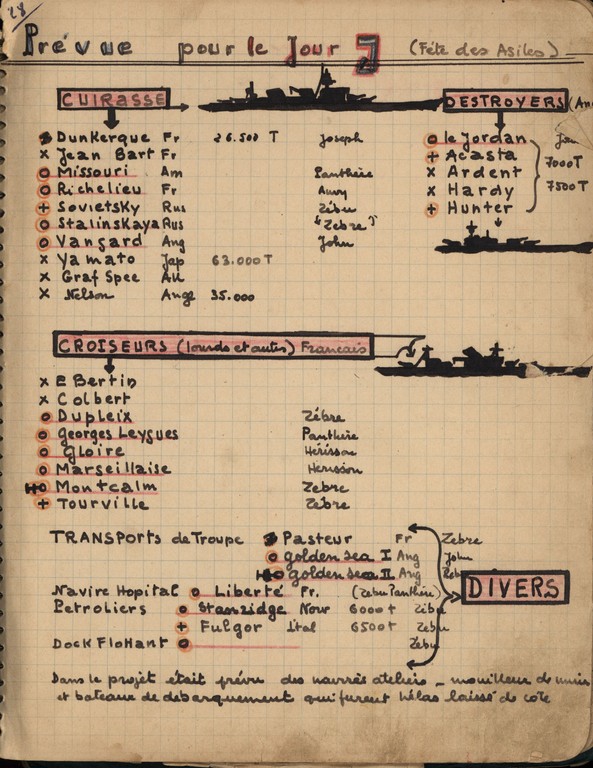 28
Prévue pour le Jour J (Fête des Asiles)
CUIRASSÉ
DESTROYERS (An
Dunkerque Fr 26.500 T Joseph
x Jean Bart Fr
o Missouri Am Panthère
o Richelieu Fr Amy
+ Sovietsky Rus Zébu
o Stalinskaya Rus "Zebre"
o Vangard Ang John
x Yamato Jap 63.000 T
x Graf Spee All
x Nelson Ang 35.000
o le Jordan
+ Acasta 7000T
x Ardent
x Hardy 7500T
+ Hunter
CROISEURS (lourds et autres) Francais
x E Bertin
x Colbert
o Dupleix Zébre
o Georges Leygues Panthère
o Gloire Hérisson
o Marseillaise Herisson
Montcalm Zebre
+ Tourville Zebre
TRANSPORTS de Troupe Pasteur Fr Zebre
o golden sea I Ang John
golden sea II Ang Zeb
DIVERS
Navire Hopital o Liberté Fr. (Zebu Panthère)
Petroliers o Stanridge Norv 6000 t Zébu
+ Fulgor Ital 6500 t Zebu
Dock Flottant o Zebu
Dans le projet était prévu des navires ateliers _ mouilleur de mines
et bateaux de debarquement qui furent hélas laissé de coté